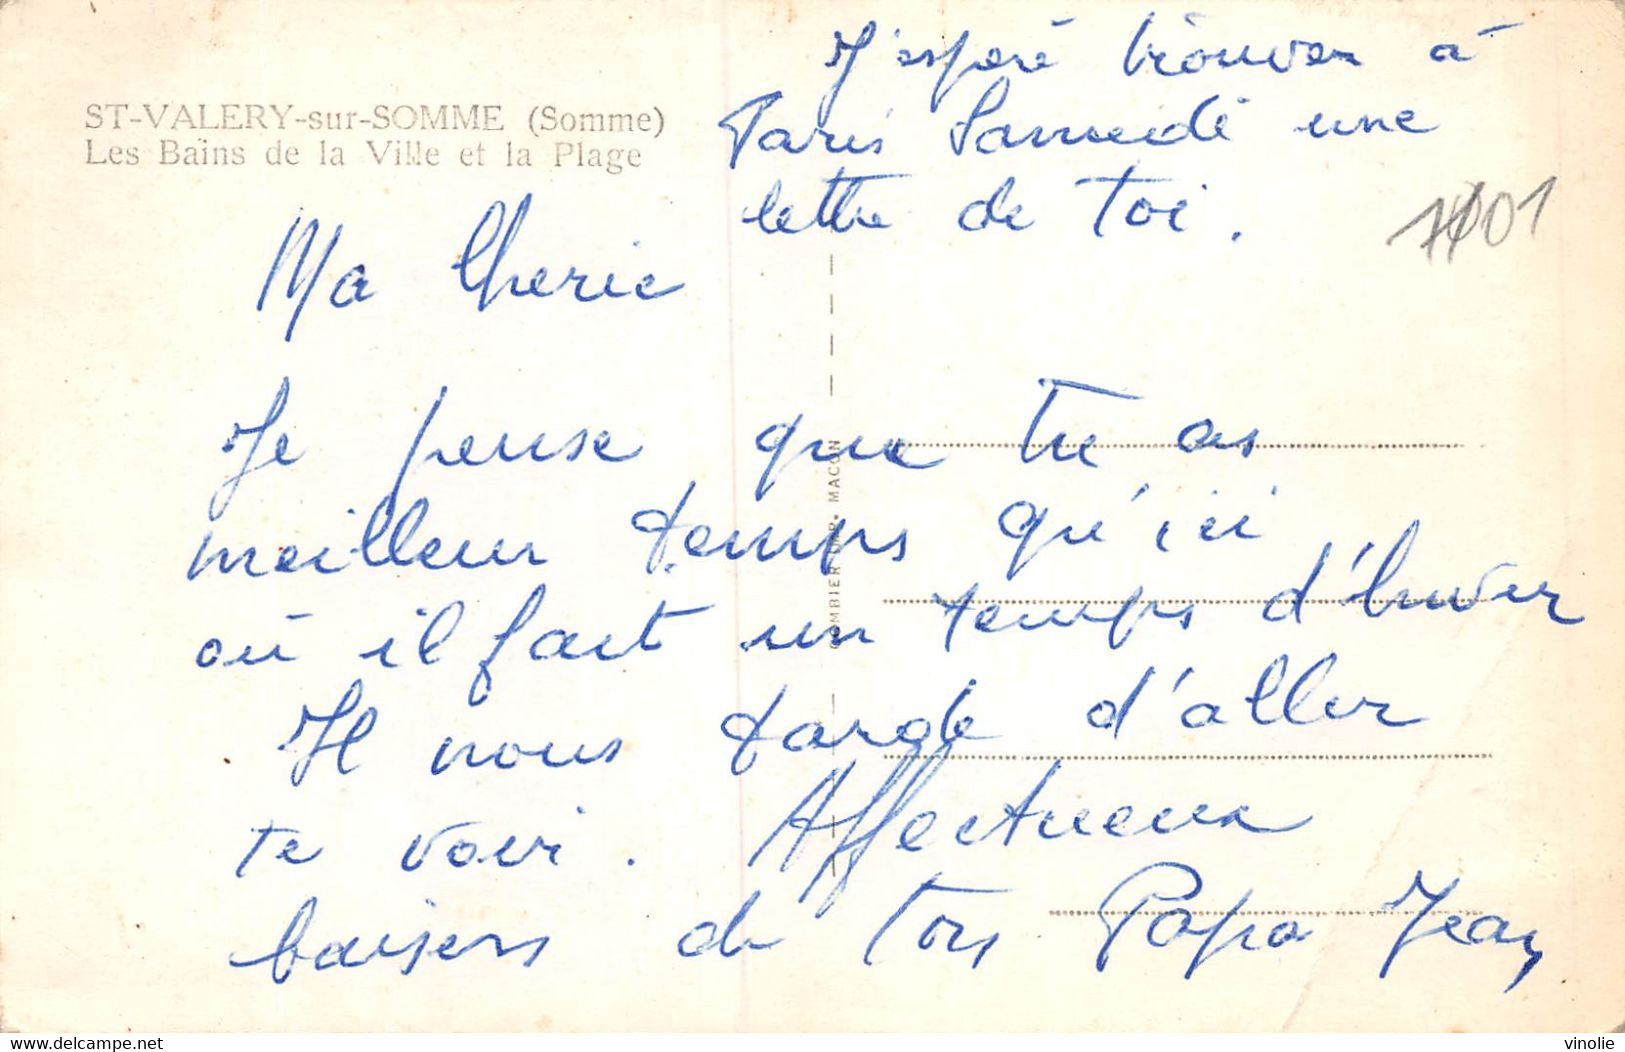 ST-VALERY-sur-SOMME (Somme)
Les Bains de la Ville et la Plage
J'espère trouver à
Paris Samedi une
lettre de Toi.
Ma Cherie
Je pense que tu as
meilleur temps qu'ici
où il fait un temps d'hiver
Il nous tarde d'aller
te voir. Affectueux
baisers de ton Papa Jean
COMBIER IMP. MACON
delcampe.net
vinolie